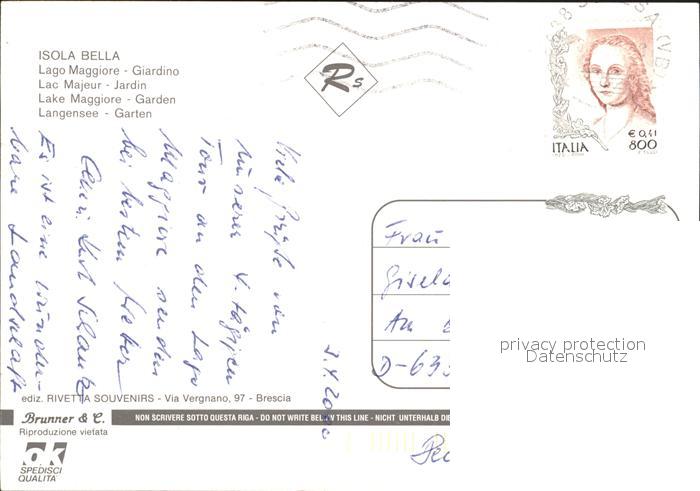 ISOLA BELLA
Lago Maggiore - Giardino
Lac Majeur - Jardin
Lake Maggiore - Garden
Langensee - Garten
Rs
SA (VB)
€ 0,41
ITALIA 800
Viele Grüße von
unserer 4-tägigen
Tour an den Lago
Maggiore senden
bei bestem Wetter
Es ist eine wunder-
bare Landschaft
Frau
Gisela
An
D-633
privacy protection
Datenschutz
ediz. RIVETTA SOUVENIRS - Via Vergnano, 97 - Brescia
Brunner & C.
NON SCRIVERE SOTTO QUESTA RIGA - DO NOT WRITE BELOW THIS LINE - NICHT UNTERHALB DIE
Riproduzione vietata
ok
SPEDISCI
QUALITA'